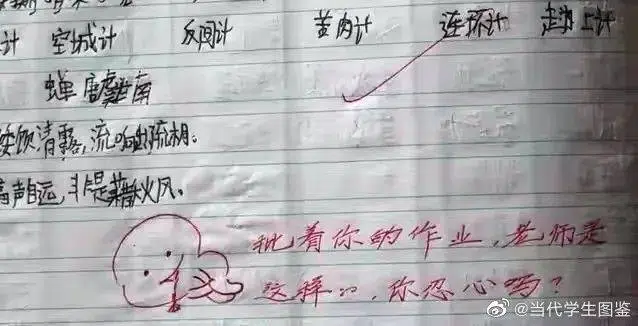 计 空城计 反间计 苦肉计 连环计 走为上计
蝉 虞世南
饮清露,流响出疏桐。
声自远,非是藉秋风。
批着你的作业,老师是
这样的,你忍心吗?
@当代学生图鉴